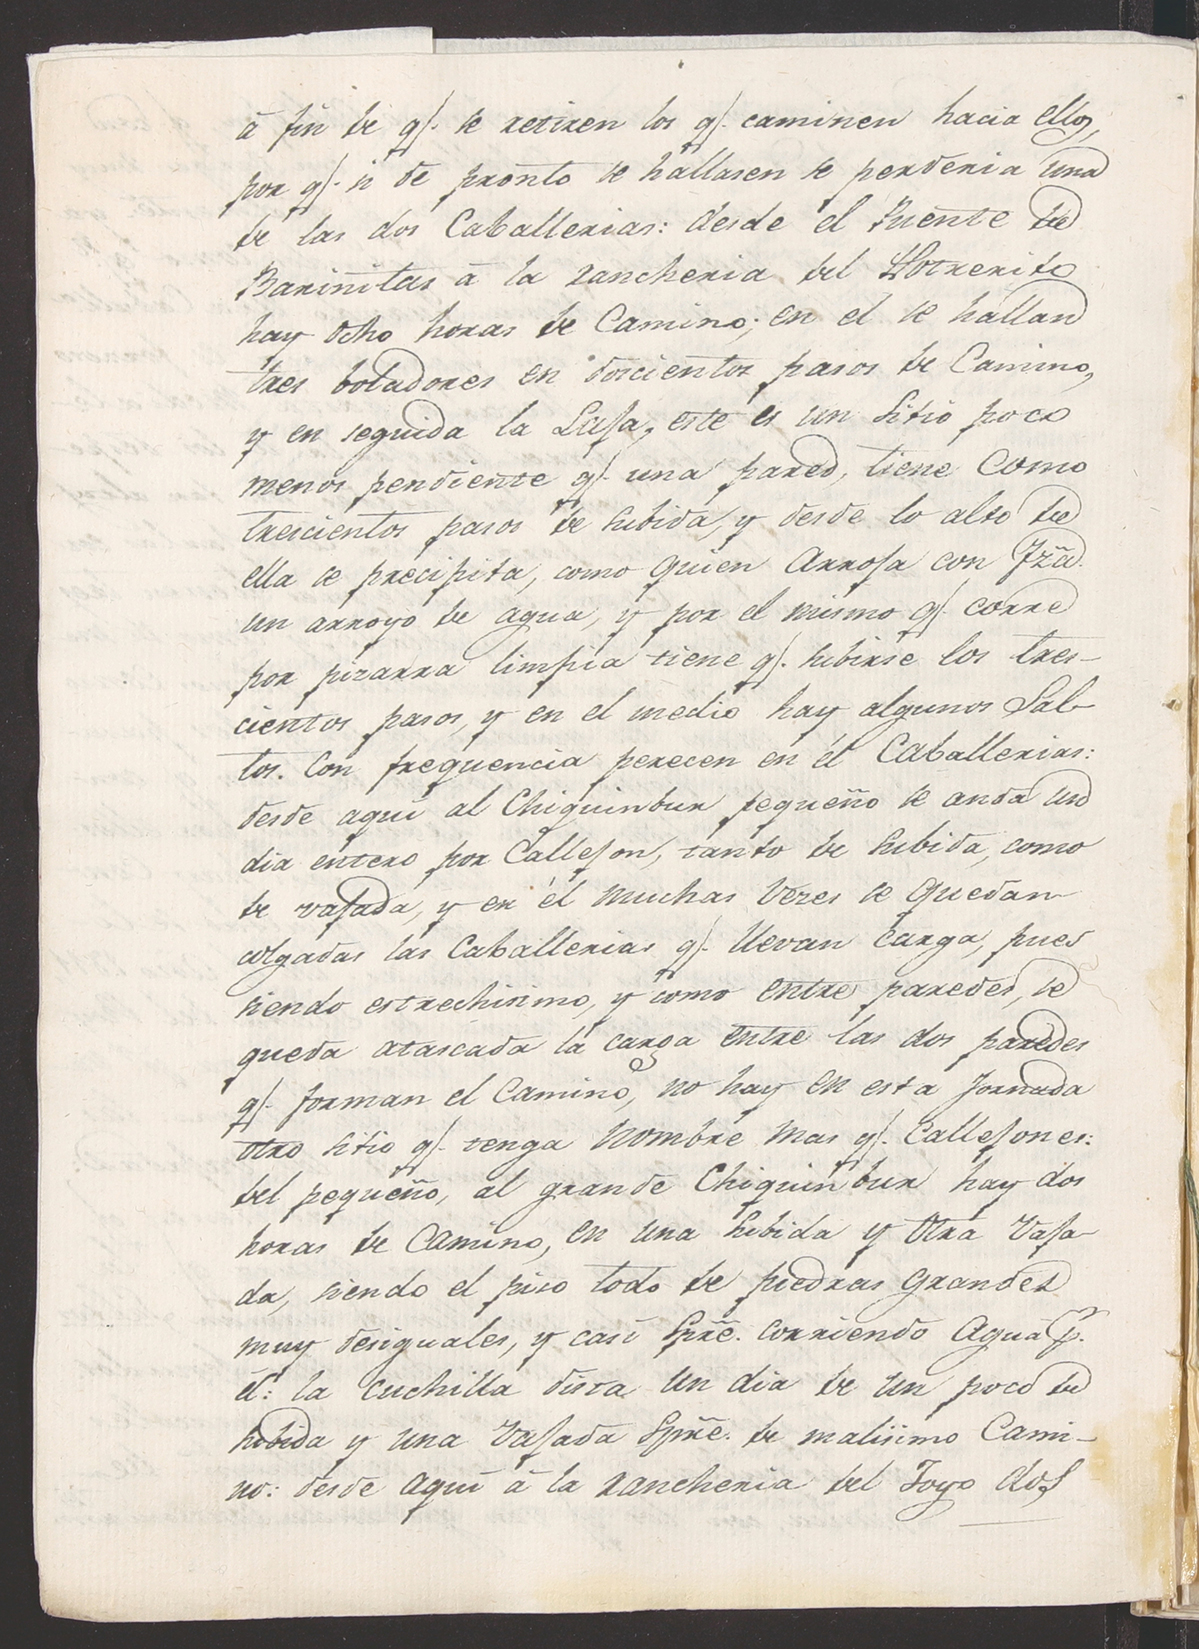 à fin de q̃. se retiren los q̃. caminen hacia ellos,
por q̃. si de pronto se hallasen se perderia una
de las dos Caballerias: desde el Puente de
Barinitas à la rancheria del Potrerito
hay ocho horas de Camino; en el se hallan
tres botadores en doscientos pasos de Camino,
y en seguida la Laja, este es un Sitio poco
menos pendiente q̃. una pared, tiene Como
trescientos pasos de subida, y desde lo alto de
ella se precipita, como quien Arroja con Fzã.
un arroyo de agua, y por el mismo q̃. corre
por pizarra limpia tiene q̃. subirse los tres-
cientos pasos, y en el medio hay algunos Sal-
tos. Con frequencia perecen en él Caballerias:
desde aqui al Chiquinbur pequeño se anda un
dia entero por Callejon, tanto de subida, como
de vajada, y en él muchas vezes se quedan
colgadas las Caballerias q̃. llevan Carga, pues
siendo estrechisimo, y como entre paredes, se
queda atascada la carga entre las dos paredes
q̃. forman el Camino, no hay en esta Jornada
otro sitio q̃. tenga nombre mas q̃. Callejones:
del pequeño, al grande Chiquinbur hay dos
horas de Camino, en una subida y otra Vaja-
da, siendo el piso todo de piedras grandes
muy desiguales, y casi Sprẽ. corriendo Agua p̃.
él: la Cuchilla dista un dia de un poco de
subida y una Vajada Sprẽ. de malisimo Cami-
no: desde aqui à la rancheria del Joyo dos